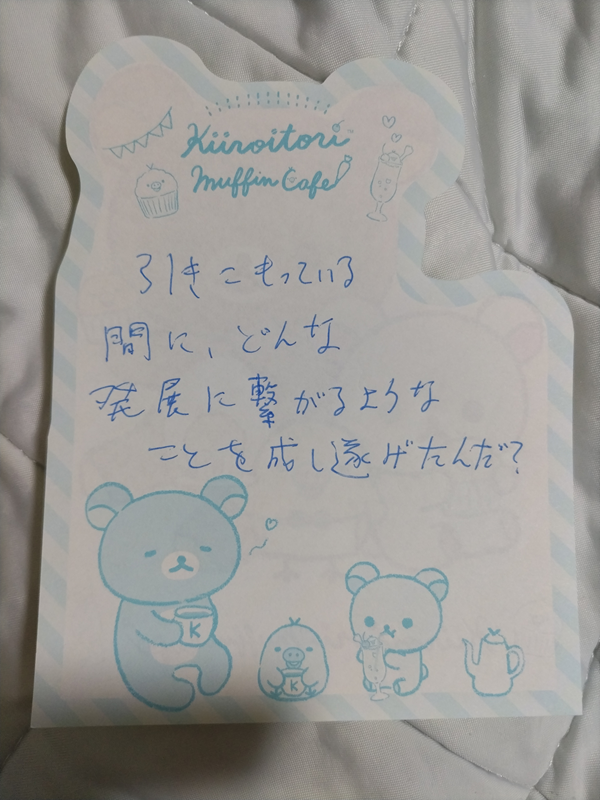 Kiiroitori
Muffin Cafe
引きこもっている
間に、どんな
発展に繋がるような
ことを成し遂げたんだ?
K
K